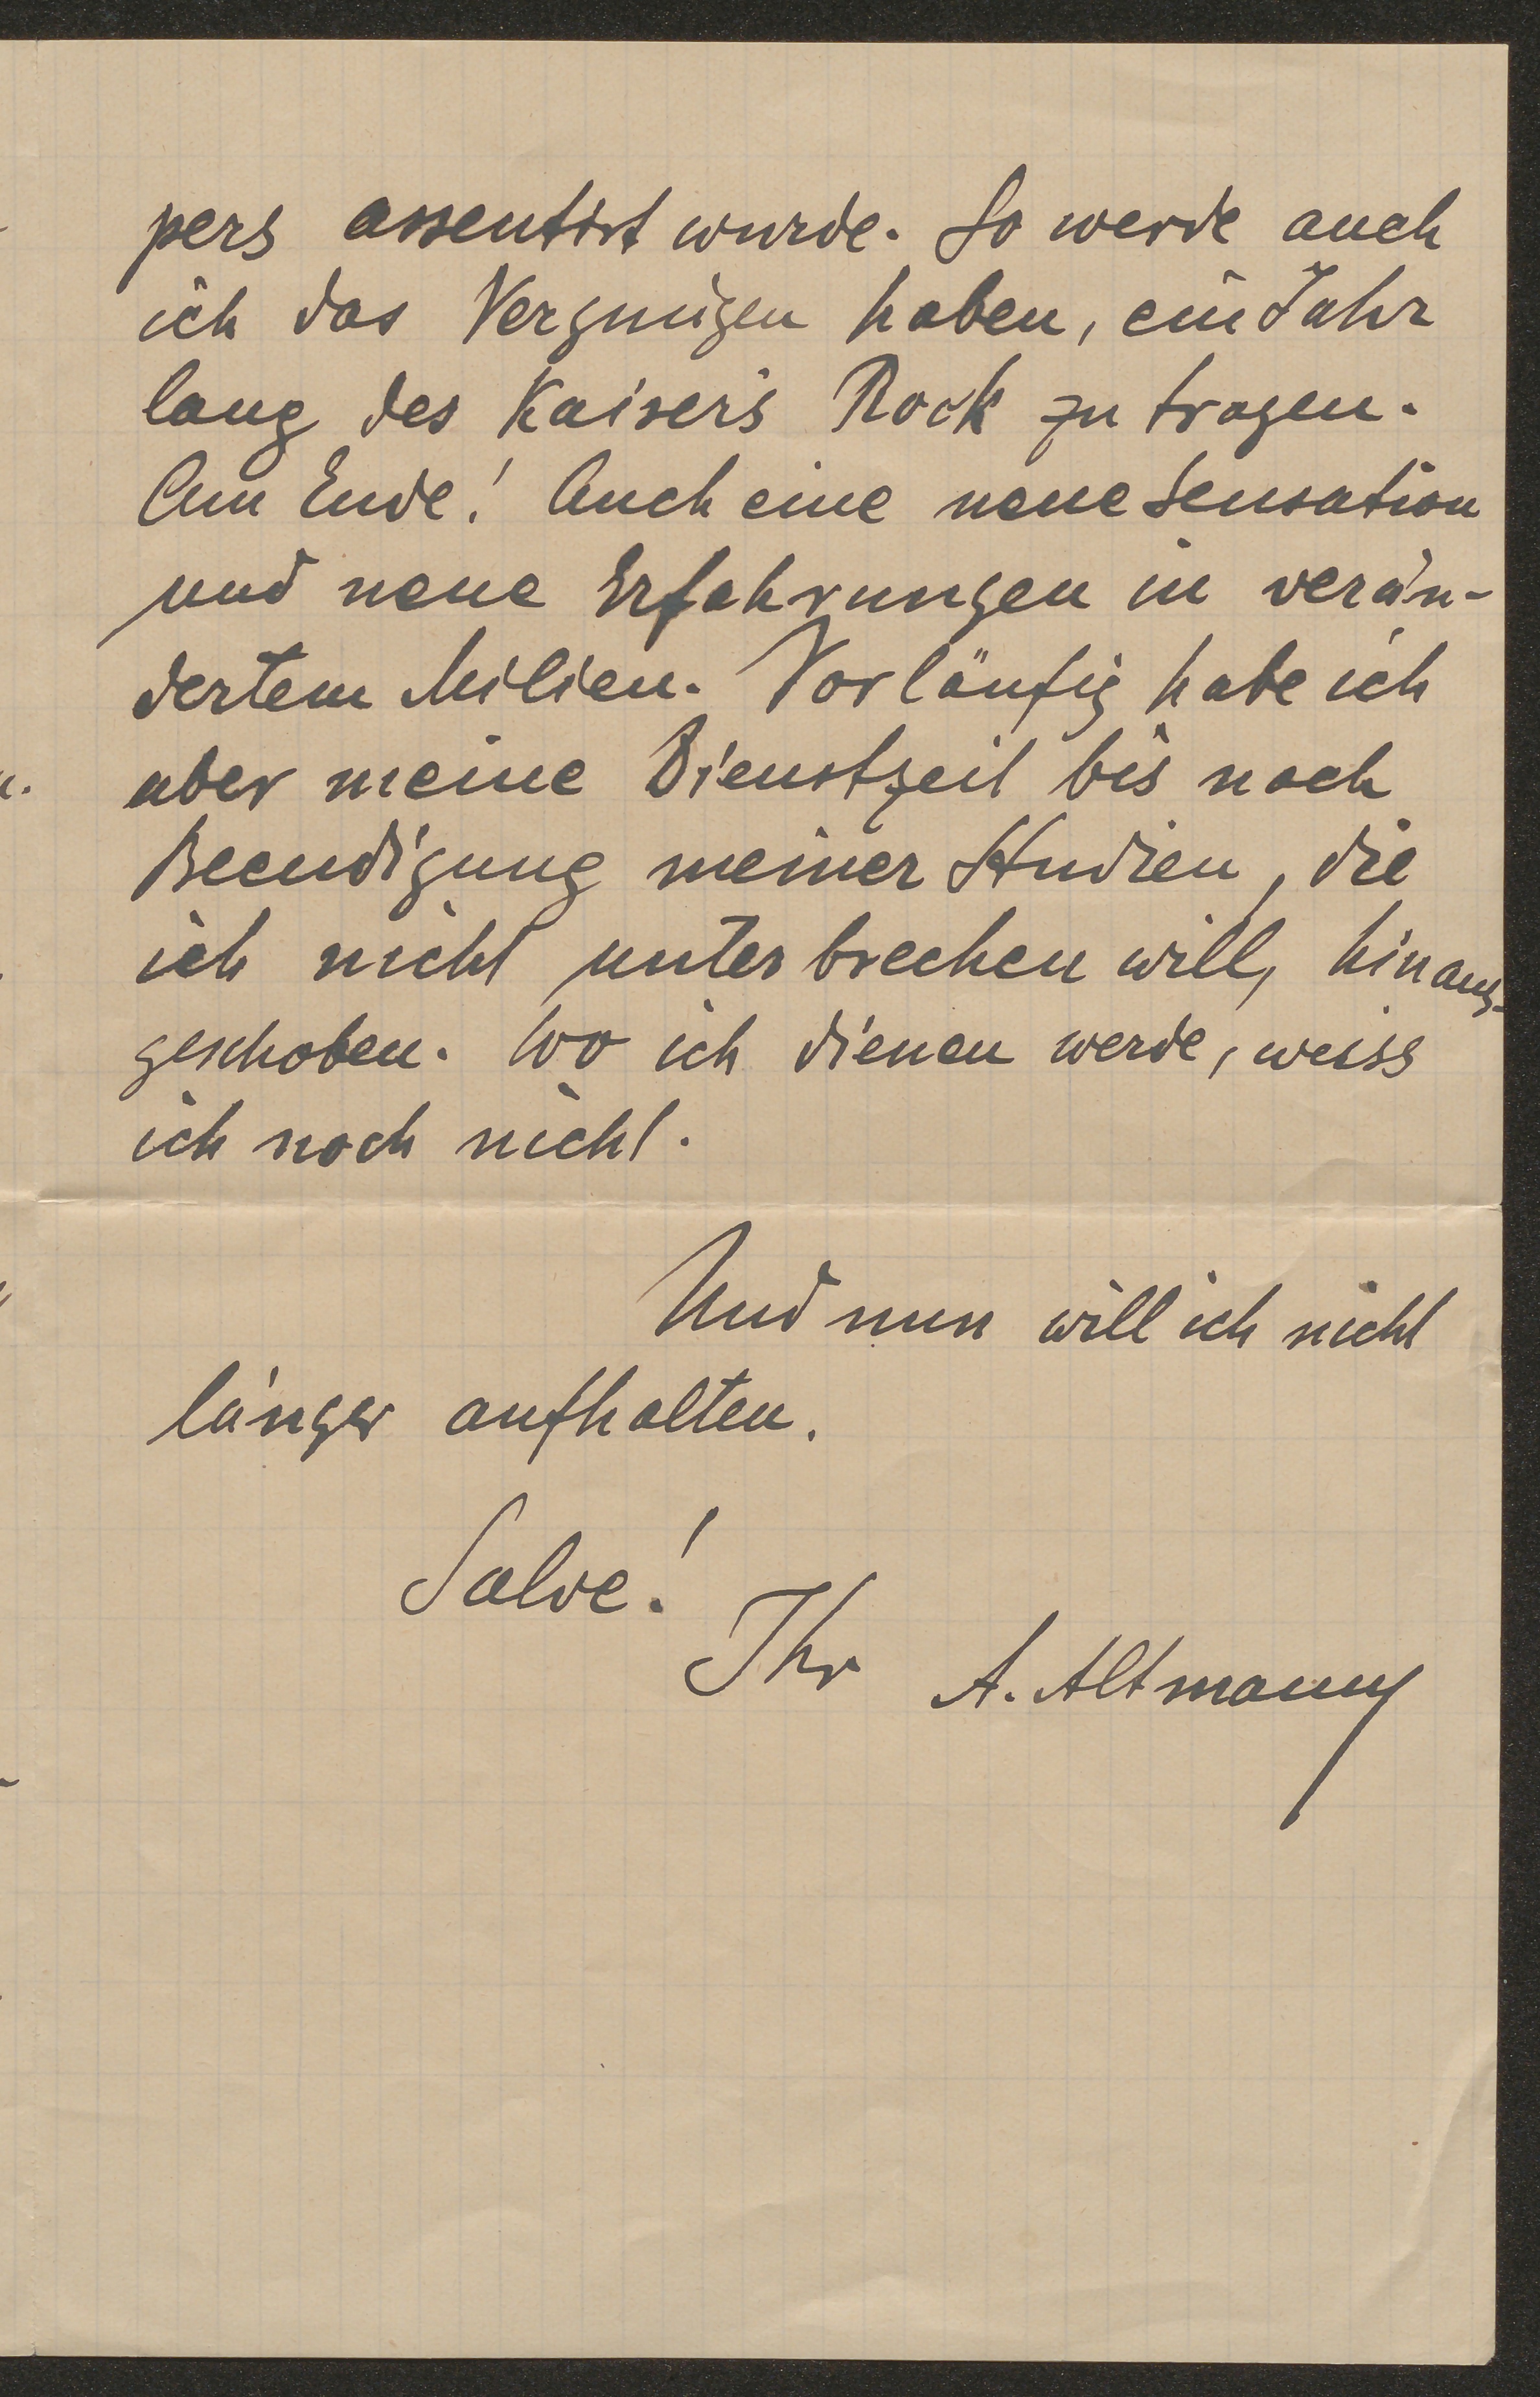 pers assentirt wurde. So werde auch
ich das Vergnügen haben, ein Jahr
lang des Kaisers Rock zu tragen.
Am Ende! Auch eine neue Sensation
und neue Erfahrungen in verän-
dertem Milieu. Vorläufig habe ich
aber meine Dienstzeit bis nach
Beendigung meiner Studien, die
ich nicht unterbrechen will, hinaus-
geschoben. Wo ich dienen werde, weiss
ich noch nicht.
Und nun will ich nicht
länger aufhalten.
Salve!
Ihr A. Altmann